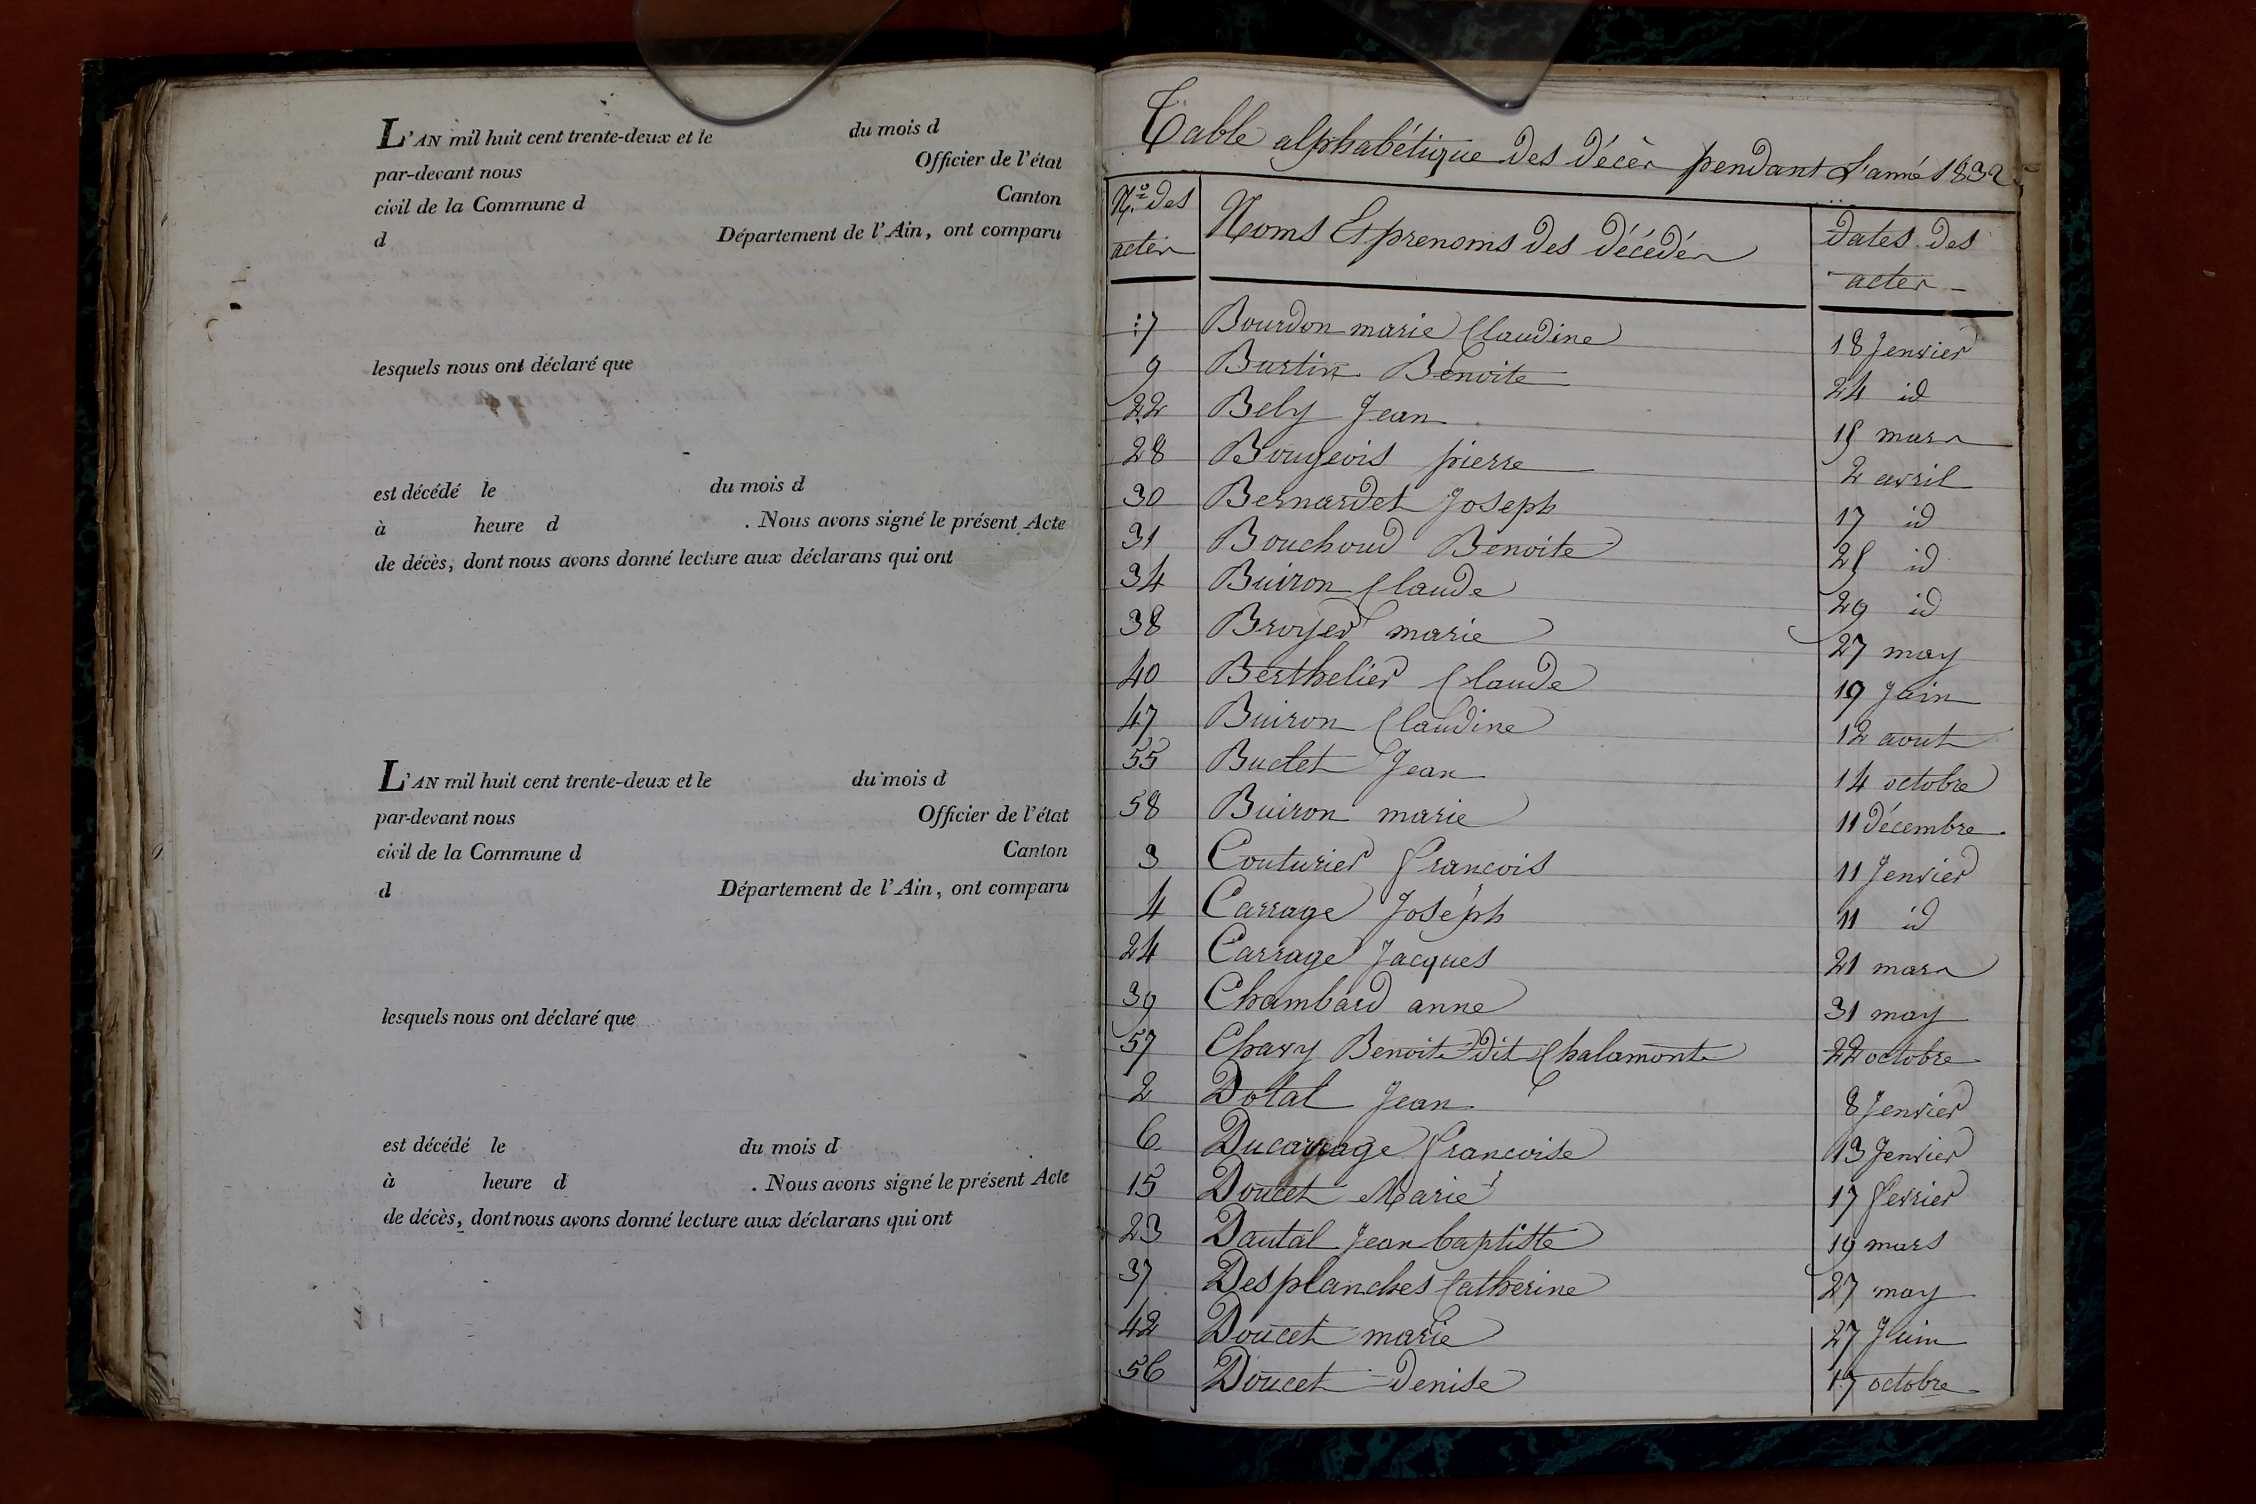 L'AN mil huit cent trente-deux et le du mois d
par-devant nous Officier de l'état
civil de la Commune d Canton
d Département de l'Ain, ont comparu
lesquels nous ont déclaré que
est décédé le du mois d
à heure d . Nous avons signé le présent Acte
de décès, dont nous avons donné lecture aux déclarans qui ont
L'AN mil huit cent trente-deux et le du mois d
par-devant nous Officier de l'état
civil de la Commune d Canton
d Département de l'Ain, ont comparu
lesquels nous ont déclaré que
est décédé le du mois d
à heure d . Nous avons signé le présent Acte
de décès, dont nous avons donné lecture aux déclarans qui ont
Table alphabétique des décès pendant L'anné 1832
N.º des actes Noms Et prenoms des décédés dates des actes
7 Bourdon marie Claudine 18 Jenvier
9 Burtin Benoite 24 id
22 Bely Jean 15 mars
28 Bougeois pierre 2 avril
30 Bernardet Joseph 17 id
31 Bouchoud Benoite 25 id
34 Buiron Claude 29 id
38 Broyer marie 27 may
40 Berthelier Claude 19 Juin
47 Buiron Claudine 12 aout
55 Buctet Jean 14 octobre
58 Buiron marie 11 décembre
3 Couturier francois 11 Jenvier
4 Carrage Joseph 11 id
24 Carrage Jacques 21 mars
39 Chambard anne 31 may
57 Chavy Benoit dit Chalamont 22 octobre
2 Dotal Jean 8 Jenvier
6 Ducarrage francoise 13 Jenvier
15 Doucet Marie 17 fevrier
23 Dautal Jean baptiste 19 mars
37 Desplanches Catherine 27 may
42 Doucet marie 27 Juin
56 Doucet Denise 17 octobre